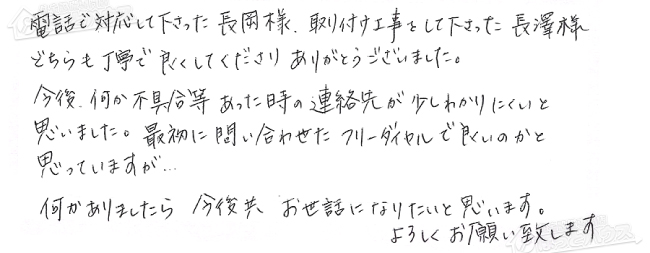 電話で対応して下さった長岡様、取り付け工事をして下さった長澤様
どちらも丁寧で良くしてくださりありがとうございました。
今後、何か不具合等あった時の連絡先が少しわかりにくいと
思いました。最初に問い合わせたフリーダイヤルで良いのかと
思っていますが…
何かありましたら今後共お世話になりたいと思います。
よろしくお願い致します